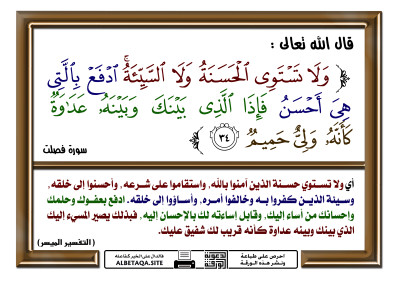 قال الله تعالى :
﴿ وَلَا تَسْتَوِي الْحَسَنَةُ وَلَا السَّيِّئَةُ ۚ ادْفَعْ بِالَّتِي
هِيَ أَحْسَنُ فَإِذَا الَّذِي بَيْنَكَ وَبَيْنَهُ عَدَاوَةٌ
كَأَنَّهُ وَلِيٌّ حَمِيمٌ ٣٤ ﴾
سورة فصلت
أي ولا تستوي حسنة الذين آمنوا بالله، واستقاموا على شرعه، وأحسنوا إلى خلقه،
وسيئة الذين كفروا به وخالفوا أمره، وأساؤوا إلى خلقه. ادفع بعفوك وحلمك
وإحسانك من أساء إليك، وقابل إساءته لك بالإحسان إليه، فبذلك يصير المسيء إليك
الذي بينك وبينه عداوة كأنه قريب لك شفيق عليك.
( التفسير الميسر )
احرص على طباعة
ونشر هذه الورقة
الدال على الخير كفاعله
ALBETAQA.SITE